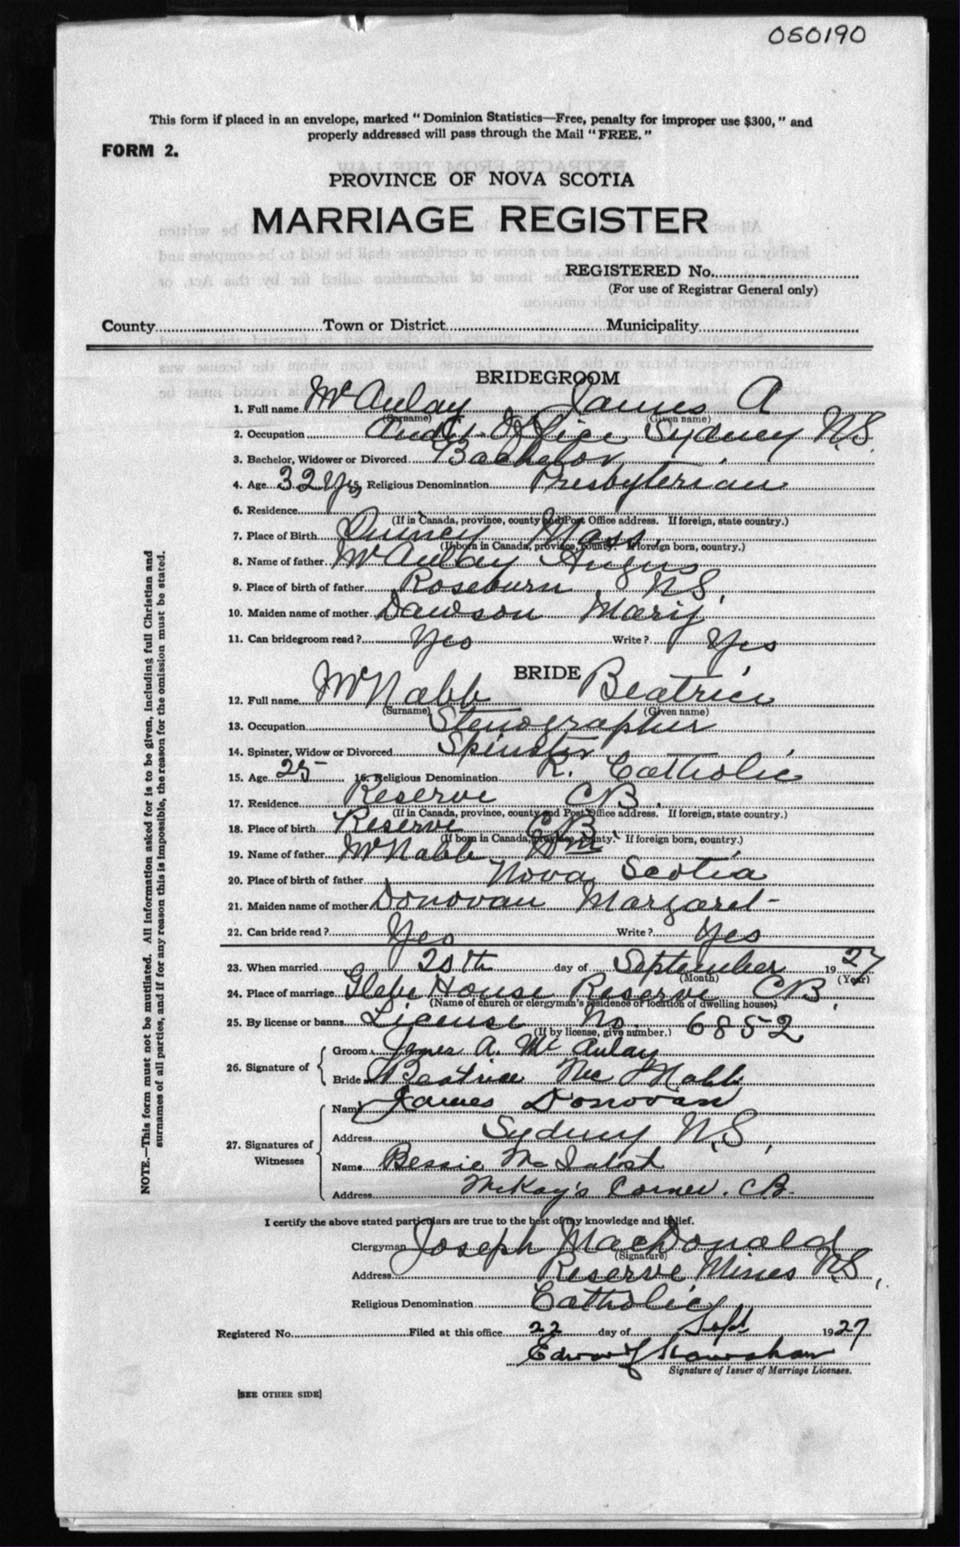 050190
This form if placed in an envelope, marked "Dominion Statistics—Free, penalty for improper use $300," and
properly addressed will pass through the Mail "FREE."
FORM 2.
PROVINCE OF NOVA SCOTIA
MARRIAGE REGISTER
REGISTERED No.
(For use of Registrar General only)
County Town or District Municipality
BRIDEGROOM
1. Full name McAulay James A
(Surname) (Given name)
2. Occupation Audit Office Sydney N.S.
3. Bachelor, Widower or Divorced Bachelor
4. Age 32 yrs Religious Denomination Presbyterian
6. Residence
(If in Canada, province, county and Post Office address. If foreign, state country.)
7. Place of Birth Quincy Mass.
(If born in Canada, province, county. If foreign born, country.)
8. Name of father McAulay Angus
9. Place of birth of father Roseburn N.S.
10. Maiden name of mother Dawson Mary
11. Can bridegroom read? Yes Write? Yes
BRIDE
12. Full name McNabb Beatrice
(Surname) (Given name)
13. Occupation Stenographer
14. Spinster, Widow or Divorced Spinster
15. Age 25 16. Religious Denomination R. Catholic
17. Residence Reserve C.B.
(If in Canada, province, county and Post Office address. If foreign, state country.)
18. Place of birth Reserve C.B.
(If born in Canada, province, county. If foreign born, country.)
19. Name of father McNabb Wm
20. Place of birth of father Nova Scotia
21. Maiden name of mother Donovan Margaret
22. Can bride read? Yes Write? Yes
23. When married 20th day of September 1927
(Month) (Year)
24. Place of marriage Glebe House Reserve C.B.
(Name of church or clergyman's residence or location of dwelling house)
25. By license or banns License No. 6852
(If by license, give number.)
26. Signature of
Groom James A. McAulay
Bride Beatrice McNabb
27. Signatures of Witnesses
Name James Donovan
Address Sydney N.S.
Name Bessie
Address McKay's Corner. C.B.
I certify the above stated particulars are true to the best of my knowledge and belief.
Clergyman Joseph MacDonald
(Signature)
Address Reserve Mines N.S.
Religious Denomination Catholic
Registered No. Filed at this office 22 day of Sept 1927
Edward
Signature of Issuer of Marriage Licenses.
[SEE OTHER SIDE]
NOTE.—This form must not be mutilated. All information asked for is to be given, including full Christian and
surnames of all parties, and if for any reason this is impossible, the reason for the omission must be stated.